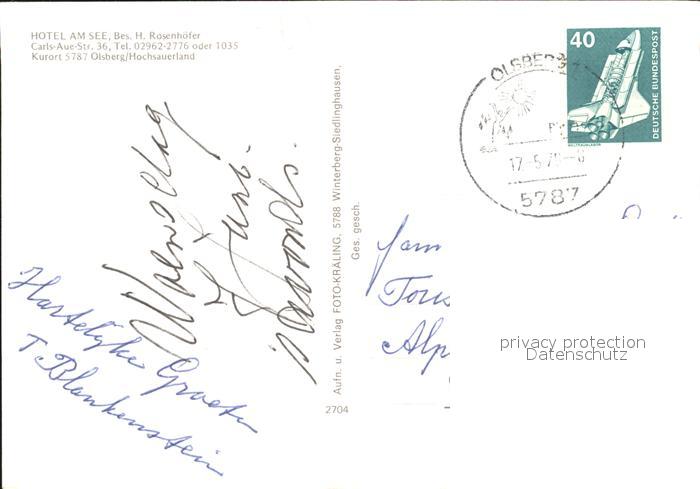 HOTEL AM SEE, Bes. H. Rosenhöfer
Carls-Aue-Str. 36, Tel. 02962-2776 oder 1035
Kurort 5787 Olsberg/Hochsauerland
Woensdag
Juni
's avonds.
Hartelijke Groeten
T Blankenstein
Aufn. u. Verlag FOTO-KRÄLING, 5788 Winterberg-Siedlinghausen,
Ges. gesch.
2704
40
DEUTSCHE BUNDESPOST
WELTRAUMLABOR
OLSBERG
17.-5.76
5787
Fam
Alp
privacy protection
Datenschutz